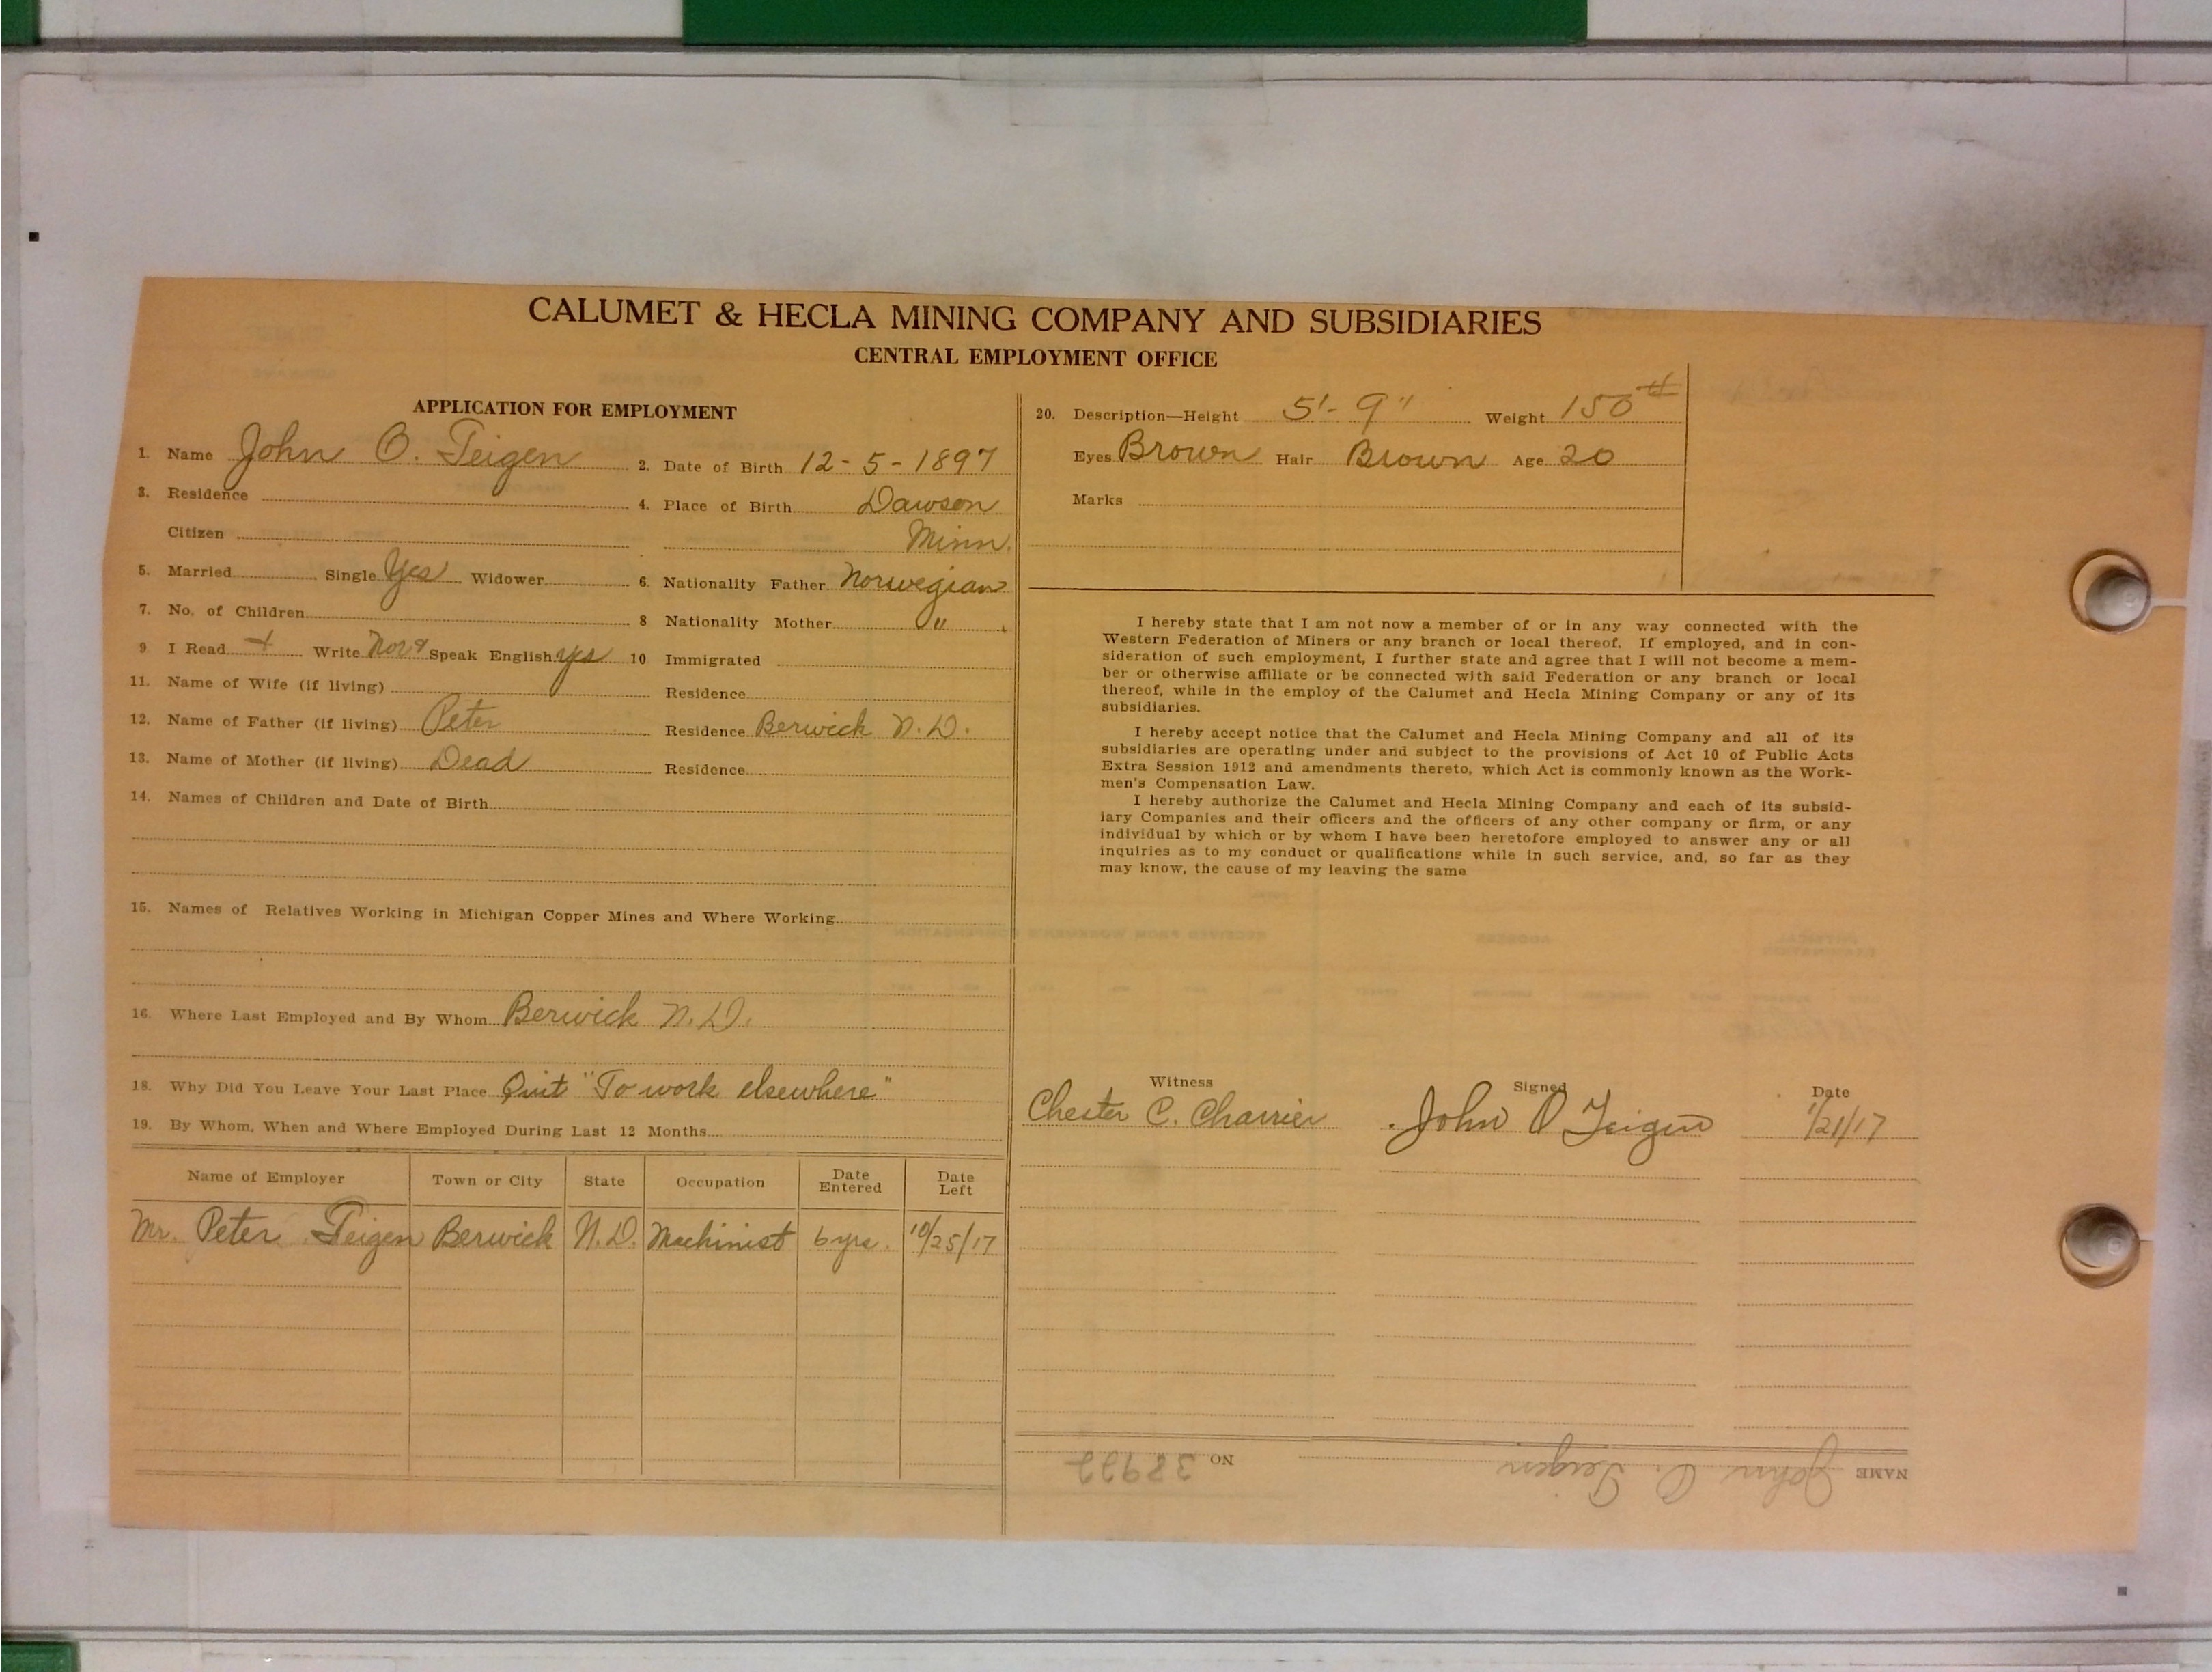 CALUMET & HECLA MINING COMPANY AND SUBSIDIARIES
CENTRAL EMPLOYMENT OFFICE
APPLICATION FOR EMPLOYMENT
1. Name John O. Teigen 2. Date of Birth 12-5-1897
3. Residence 4. Place of Birth Dawson
Citizen Minn.
5. Married Single Yes Widower 6. Nationality Father Norwegian
7. No. of Children 8 Nationality Mother "
9. I Read + Write Nor & Speak English yes 10 Immigrated
11. Name of Wife (if living) Residence
12. Name of Father (if living) Peter Residence Berwick N.D.
13. Name of Mother (if living) Dead Residence
14. Names of Children and Date of Birth
15. Names of Relatives Working in Michigan Copper Mines and Where Working
16. Where Last Employed and By Whom Berwick N.D.
18. Why Did You Leave Your Last Place Quit "To work elsewhere"
19. By Whom, When and Where Employed During Last 12 Months
Name of Employer Town or City State Occupation Date Entered Date Left
Mr. Peter Teigen Berwick N.D. Machinist 6 yrs. 10/25/17
20. Description—Height 5'-9" Weight 150#
Eyes Brown Hair Brown Age 20
Marks
I hereby state that I am not now a member of or in any way connected with the
Western Federation of Miners or any branch or local thereof. If employed, and in con-
sideration of such employment, I further state and agree that I will not become a mem-
ber or otherwise affiliate or be connected with said Federation or any branch or local
thereof, while in the employ of the Calumet and Hecla Mining Company or any of its
subsidiaries.
I hereby accept notice that the Calumet and Hecla Mining Company and all of its
subsidiaries are operating under and subject to the provisions of Act 10 of Public Acts
Extra Session 1912 and amendments thereto, which Act is commonly known as the Work-
men's Compensation Law.
I hereby authorize the Calumet and Hecla Mining Company and each of its subsid-
iary Companies and their officers and the officers of any other company or firm, or any
individual by which or by whom I have been heretofore employed to answer any or all
inquiries as to my conduct or qualifications while in such service, and, so far as they
may know, the cause of my leaving the same
Witness Signed Date
Chester C. Charrier John O Teigen 1/21/17
NAME John O. Teigen NO 38922